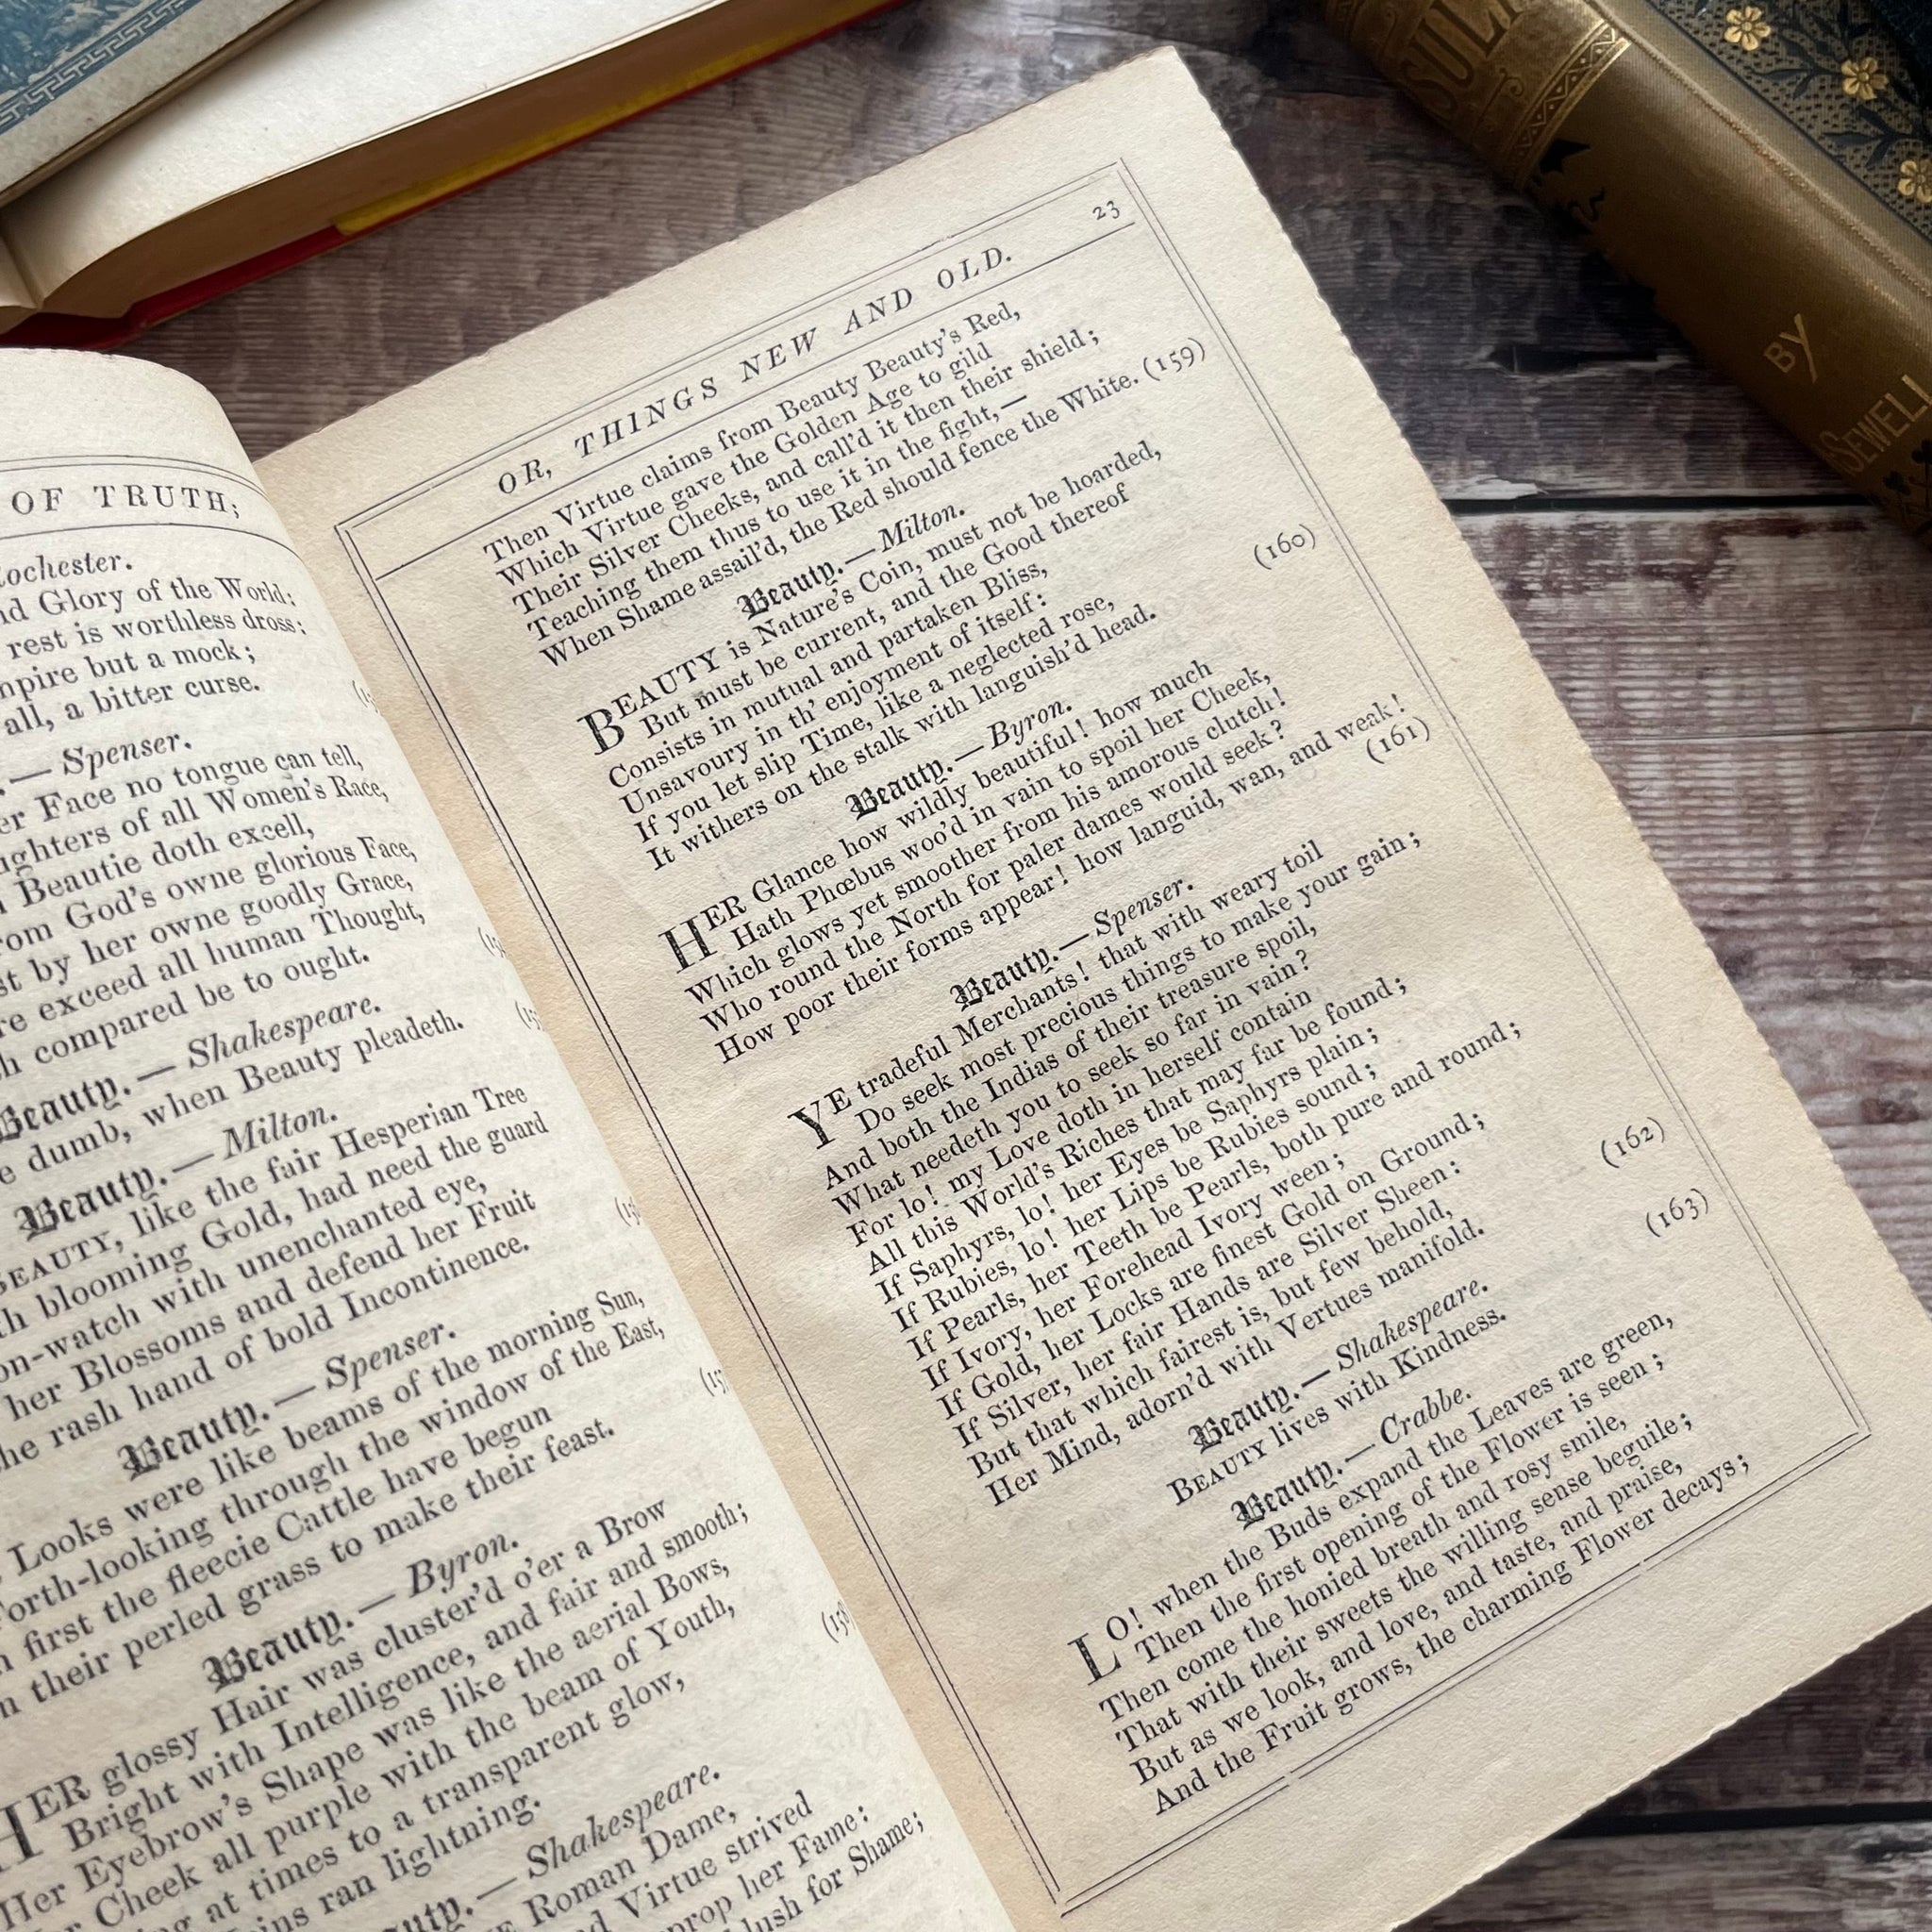 OF TRUTH;
ochester.
nd Glory of the World:
rest is worthless dross:
mpire but a mock;
all, a bitter curse.
.— Spenser.
er Face no tongue can tell,
ughters of all Women's Race,
Beautie doth excell,
rom God's owne glorious Face,
st by her owne goodly Grace,
re exceed all human Thought,
h compared be to ought.
Beauty. — Shakespeare.
e dumb, when Beauty pleadeth.
Beauty. — Milton.
BEAUTY, like the fair Hesperian Tree
th blooming Gold, had need the guard
on-watch with unenchanted eye,
her Blossoms and defend her Fruit
he rash hand of bold Incontinence.
Beauty. — Spenser.
Looks were like beams of the morning Sun,
Forth-looking through the window of the East,
n first the fleecie Cattle have begun
n their perled grass to make their feast.
Beauty. — Byron.
HER glossy Hair was cluster'd o'er a Brow
Bright with Intelligence, and fair and smooth;
Her Eyebrow's Shape was like the aerial Bows,
r Cheek all purple with the beam of Youth,
ng at times to a transparent glow,
ins ran lightning.
auty. — Shakespeare.
Roman Dame,
d Virtue strived
prop her Fame:
lush for Shame;
OR, THINGS NEW AND OLD. 23
Then Virtue claims from Beauty Beauty's Red,
Which Virtue gave the Golden Age to gild
Their Silver Cheeks, and call'd it then their shield;
Teaching them thus to use it in the fight,—
When Shame assail'd, the Red should fence the White. (159)
Beauty. — Milton.
BEAUTY is Nature's Coin, must not be hoarded,
But must be current, and the Good thereof
Consists in mutual and partaken Bliss,
Unsavoury in th' enjoyment of itself:
If you let slip Time, like a neglected rose,
It withers on the stalk with languish'd head. (160)
Beauty. — Byron.
HER Glance how wildly beautiful! how much
Hath Phœbus woo'd in vain to spoil her Cheek,
Which glows yet smoother from his amorous clutch!
Who round the North for paler dames would seek?
How poor their forms appear! how languid, wan, and weak!
(161)
Beauty. — Spenser.
YE tradeful Merchants! that with weary toil
Do seek most precious things to make your gain;
And both the Indias of their treasure spoil,
What needeth you to seek so far in vain?
For lo! my Love doth in herself contain
All this World's Riches that may far be found;
If Saphyrs, lo! her Eyes be Saphyrs plain;
If Rubies, lo! her Lips be Rubies sound;
If Pearls, her Teeth be Pearls, both pure and round;
If Ivory, her Forehead Ivory ween;
If Gold, her Locks are finest Gold on Ground;
If Silver, her fair Hands are Silver Sheen:
But that which fairest is, but few behold,
Her Mind, adorn'd with Vertues manifold. (162)
Beauty. — Shakespeare.
BEAUTY lives with Kindness. (163)
Beauty. — Crabbe.
LO! when the Buds expand the Leaves are green,
Then the first opening of the Flower is seen;
Then come the honied breath and rosy smile,
That with their sweets the willing sense beguile;
But as we look, and love, and taste, and praise,
And the Fruit grows, the charming Flower decays;
BY
SEWELL